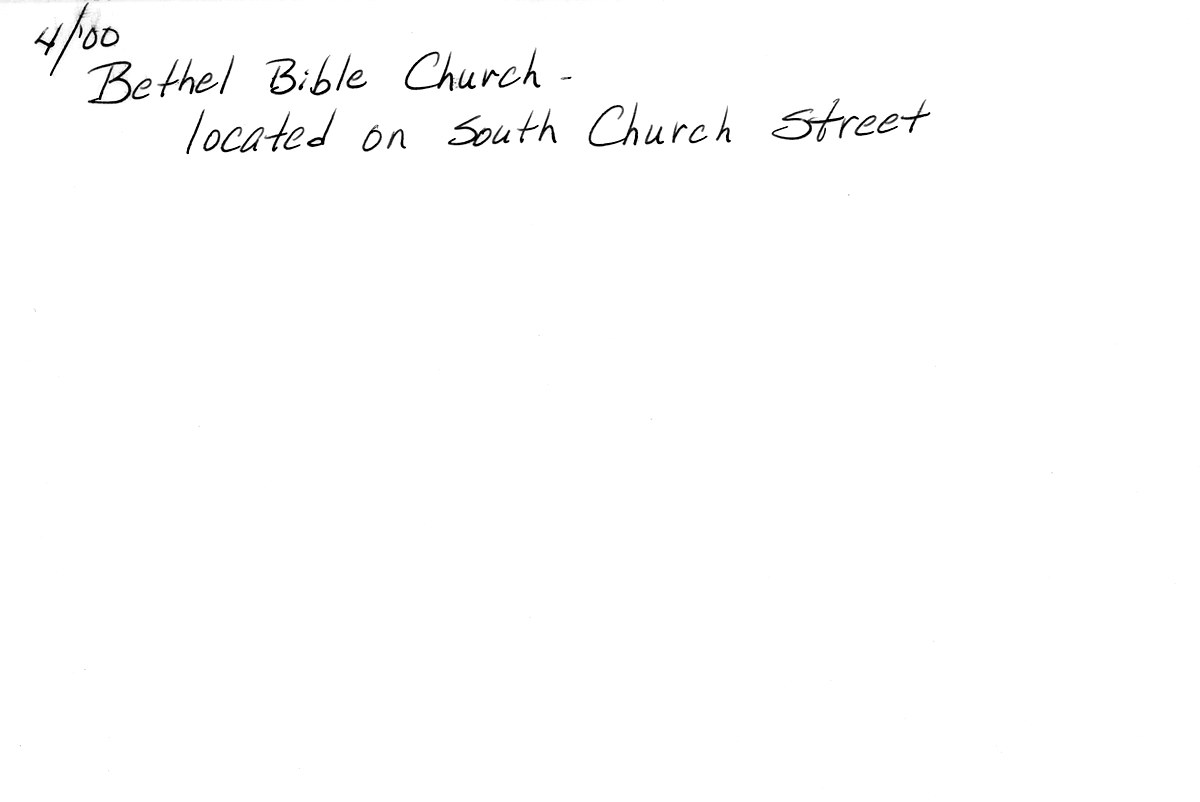 4/'00
Bethel Bible Church -
located on South Church Street